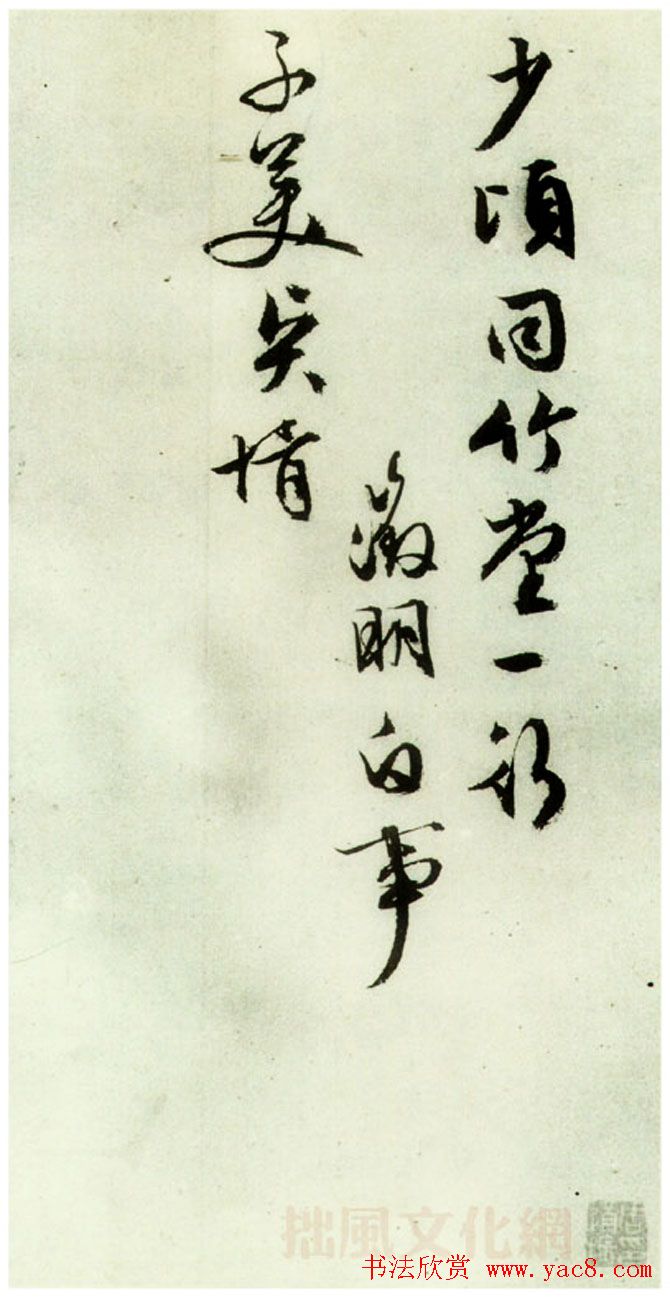 少頃同竹堂一行
徵明白事
子美
拙風文化網
书法欣赏 www.yac8.com